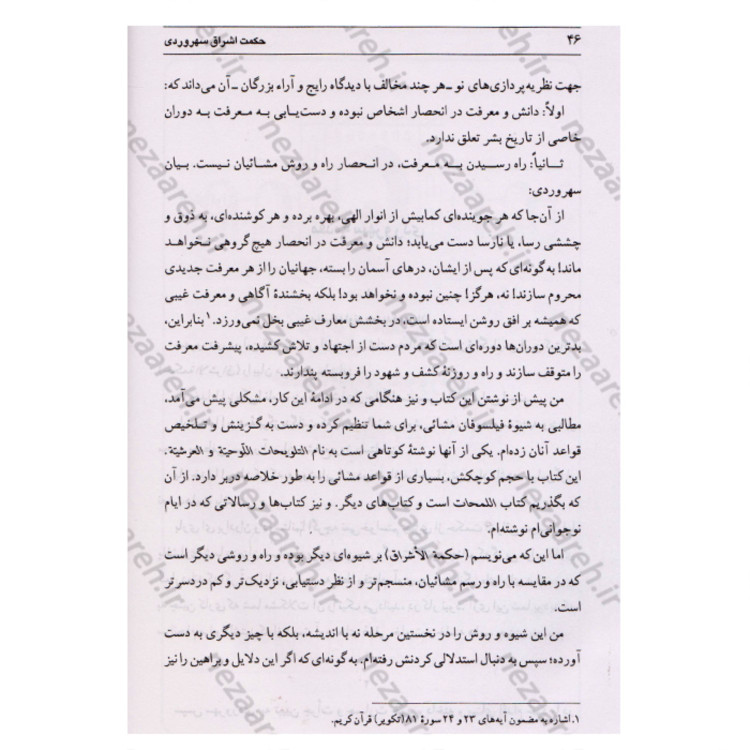 ۴۶ حکمت اشراق سهروردی
جهت نظریه‌پردازی‌های نو ـ هر چند مخالف با دیدگاه رایج و آراء بزرگان ـ آن می‌داند که:
اولاً: دانش و معرفت در انحصار اشخاص نبوده و دست‌یابی به معرفت به دوران
خاصی از تاریخ بشر تعلق ندارد.
ثانیاً: راه رسیدن به معرفت، در انحصار راه و روش مشائیان نیست. بیان
سهروردی:
از آن‌جا که هر جوینده‌ای کمابیش از انوار الهی، بهره برده و هر کوشنده‌ای، به ذوق و
چششی رسا، یا نارسا دست می‌یابد؛ دانش و معرفت در انحصار هیچ گروهی نخواهد
ماند! به گونه‌ای که پس از ایشان، درهای آسمان را بسته، جهانیان را از هر معرفت جدیدی
محروم سازند! نه، هرگز! چنین نبوده و نخواهد بود! بلکه بخشندهٔ آگاهی و معرفت غیبی
که همیشه بر افق روشن ایستاده است، در بخشش معارف غیبی بخل نمی‌ورزد.۱ بنابراین،
بدترین دوران‌ها دوره‌ای است که مردم دست از اجتهاد و تلاش کشیده، پیشرفت معرفت
را متوقف سازند و راه و روزنهٔ کشف و شهود را فروبسته پندارند.
من پیش از نوشتن این کتاب و نیز هنگامی که در ادامهٔ این کار، مشکلی پیش می‌آمد،
مطالبی به شیوهٔ فیلسوفان مشائی، برای شما تنظیم کرده و دست به گزینش و تلخیص
قواعد آنان زده‌ام. یکی از آنها نوشتهٔ کوتاهی است به نام التلویحات اللّوحیّة و العرشیّة.
این کتاب با حجم کوچکش، بسیاری از قواعد مشائی را به طور خلاصه دربر دارد. از آن
که بگذریم کتاب اللمحات است و کتاب‌های دیگر. و نیز کتاب‌ها و رسالاتی که در ایام
نوجوانی‌ام نوشته‌ام.
اما این که می‌نویسم (حکمة الأشراق) بر شیوه‌ای دیگر بوده و راه و روشی دیگر است
که در مقایسه با راه و رسم مشائیان، منسجم‌تر و از نظر دستیابی، نزدیک‌تر و کم دردسرتر
است.
من این شیوه و روش را در نخستین مرحله نه با اندیشه، بلکه با چیز دیگری به دست
آورده؛ سپس به دنبال استدلالی کردنش رفته‌ام. به گونه‌ای که اگر این دلایل و براهین را نیز
۱. اشاره به مضمون آیه‌های ۲۳ و ۲۴ سورهٔ ۸۱(تکویر) قرآن کریم.
nezaareh.ir